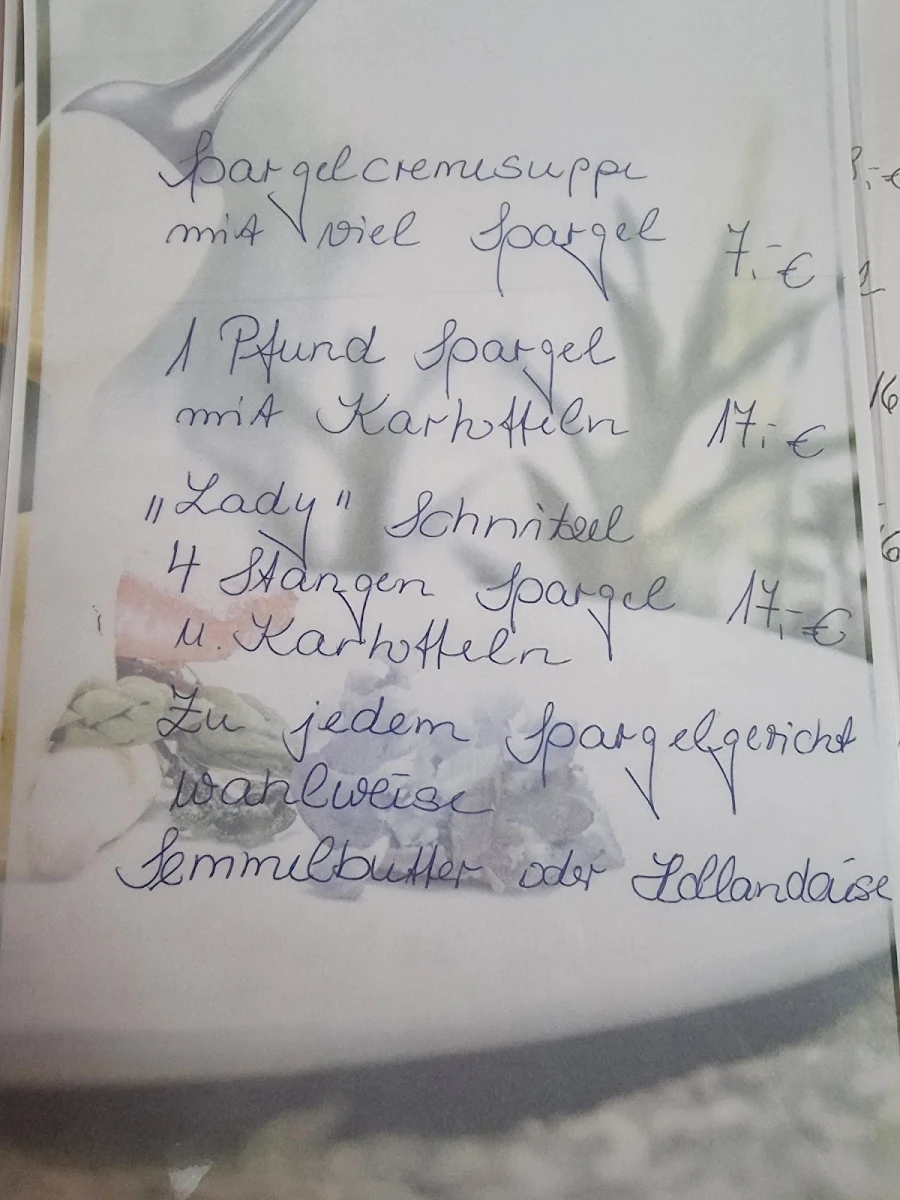 Spargelcremesuppe
mit viel Spargel 7,-€
1 Pfund Spargel
mit Kartoffeln 17,-€
"Lady" Schnitzel
4 Stangen Spargel 17,-€
u. Kartoffeln
Zu jedem Spargelgericht
wahlweise
Semmelbutter oder Hollandaise